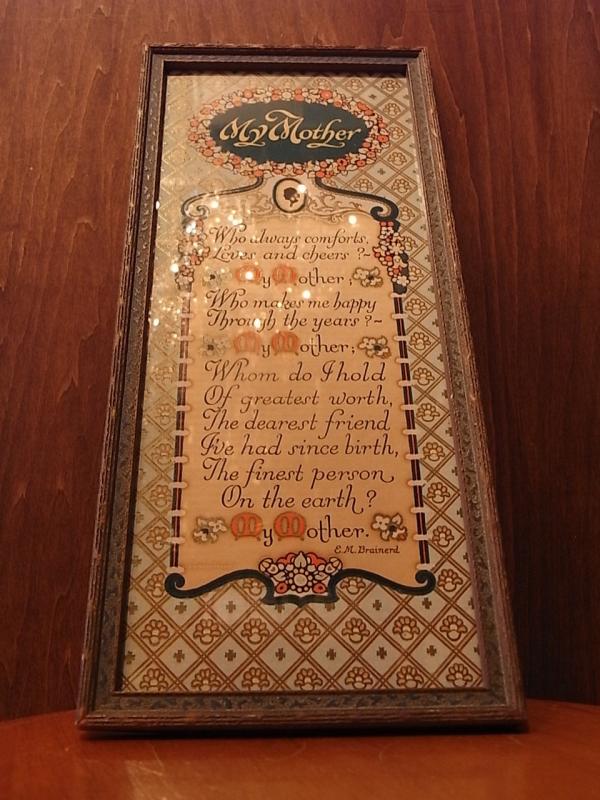 My Mother
Who always comforts,
Loves and cheers?~
My Mother;
Who makes me happy
Through the years?~
My Mother;
Whom do I hold
Of greatest worth,
The dearest friend
I've had since birth,
The finest person
On the earth?
My Mother.
E.M. Brainerd